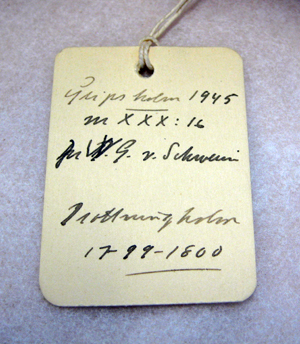 Gripsholm 1945
m XXX:16
G. v. Schwerin
Drottningholm
1799-1800